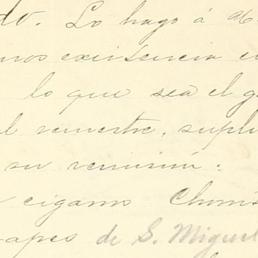 do. Lo hago á
nos existencia
lo que sea el
semestre, supli
su remisión:
cigarros Chom
apes de S. Miguel